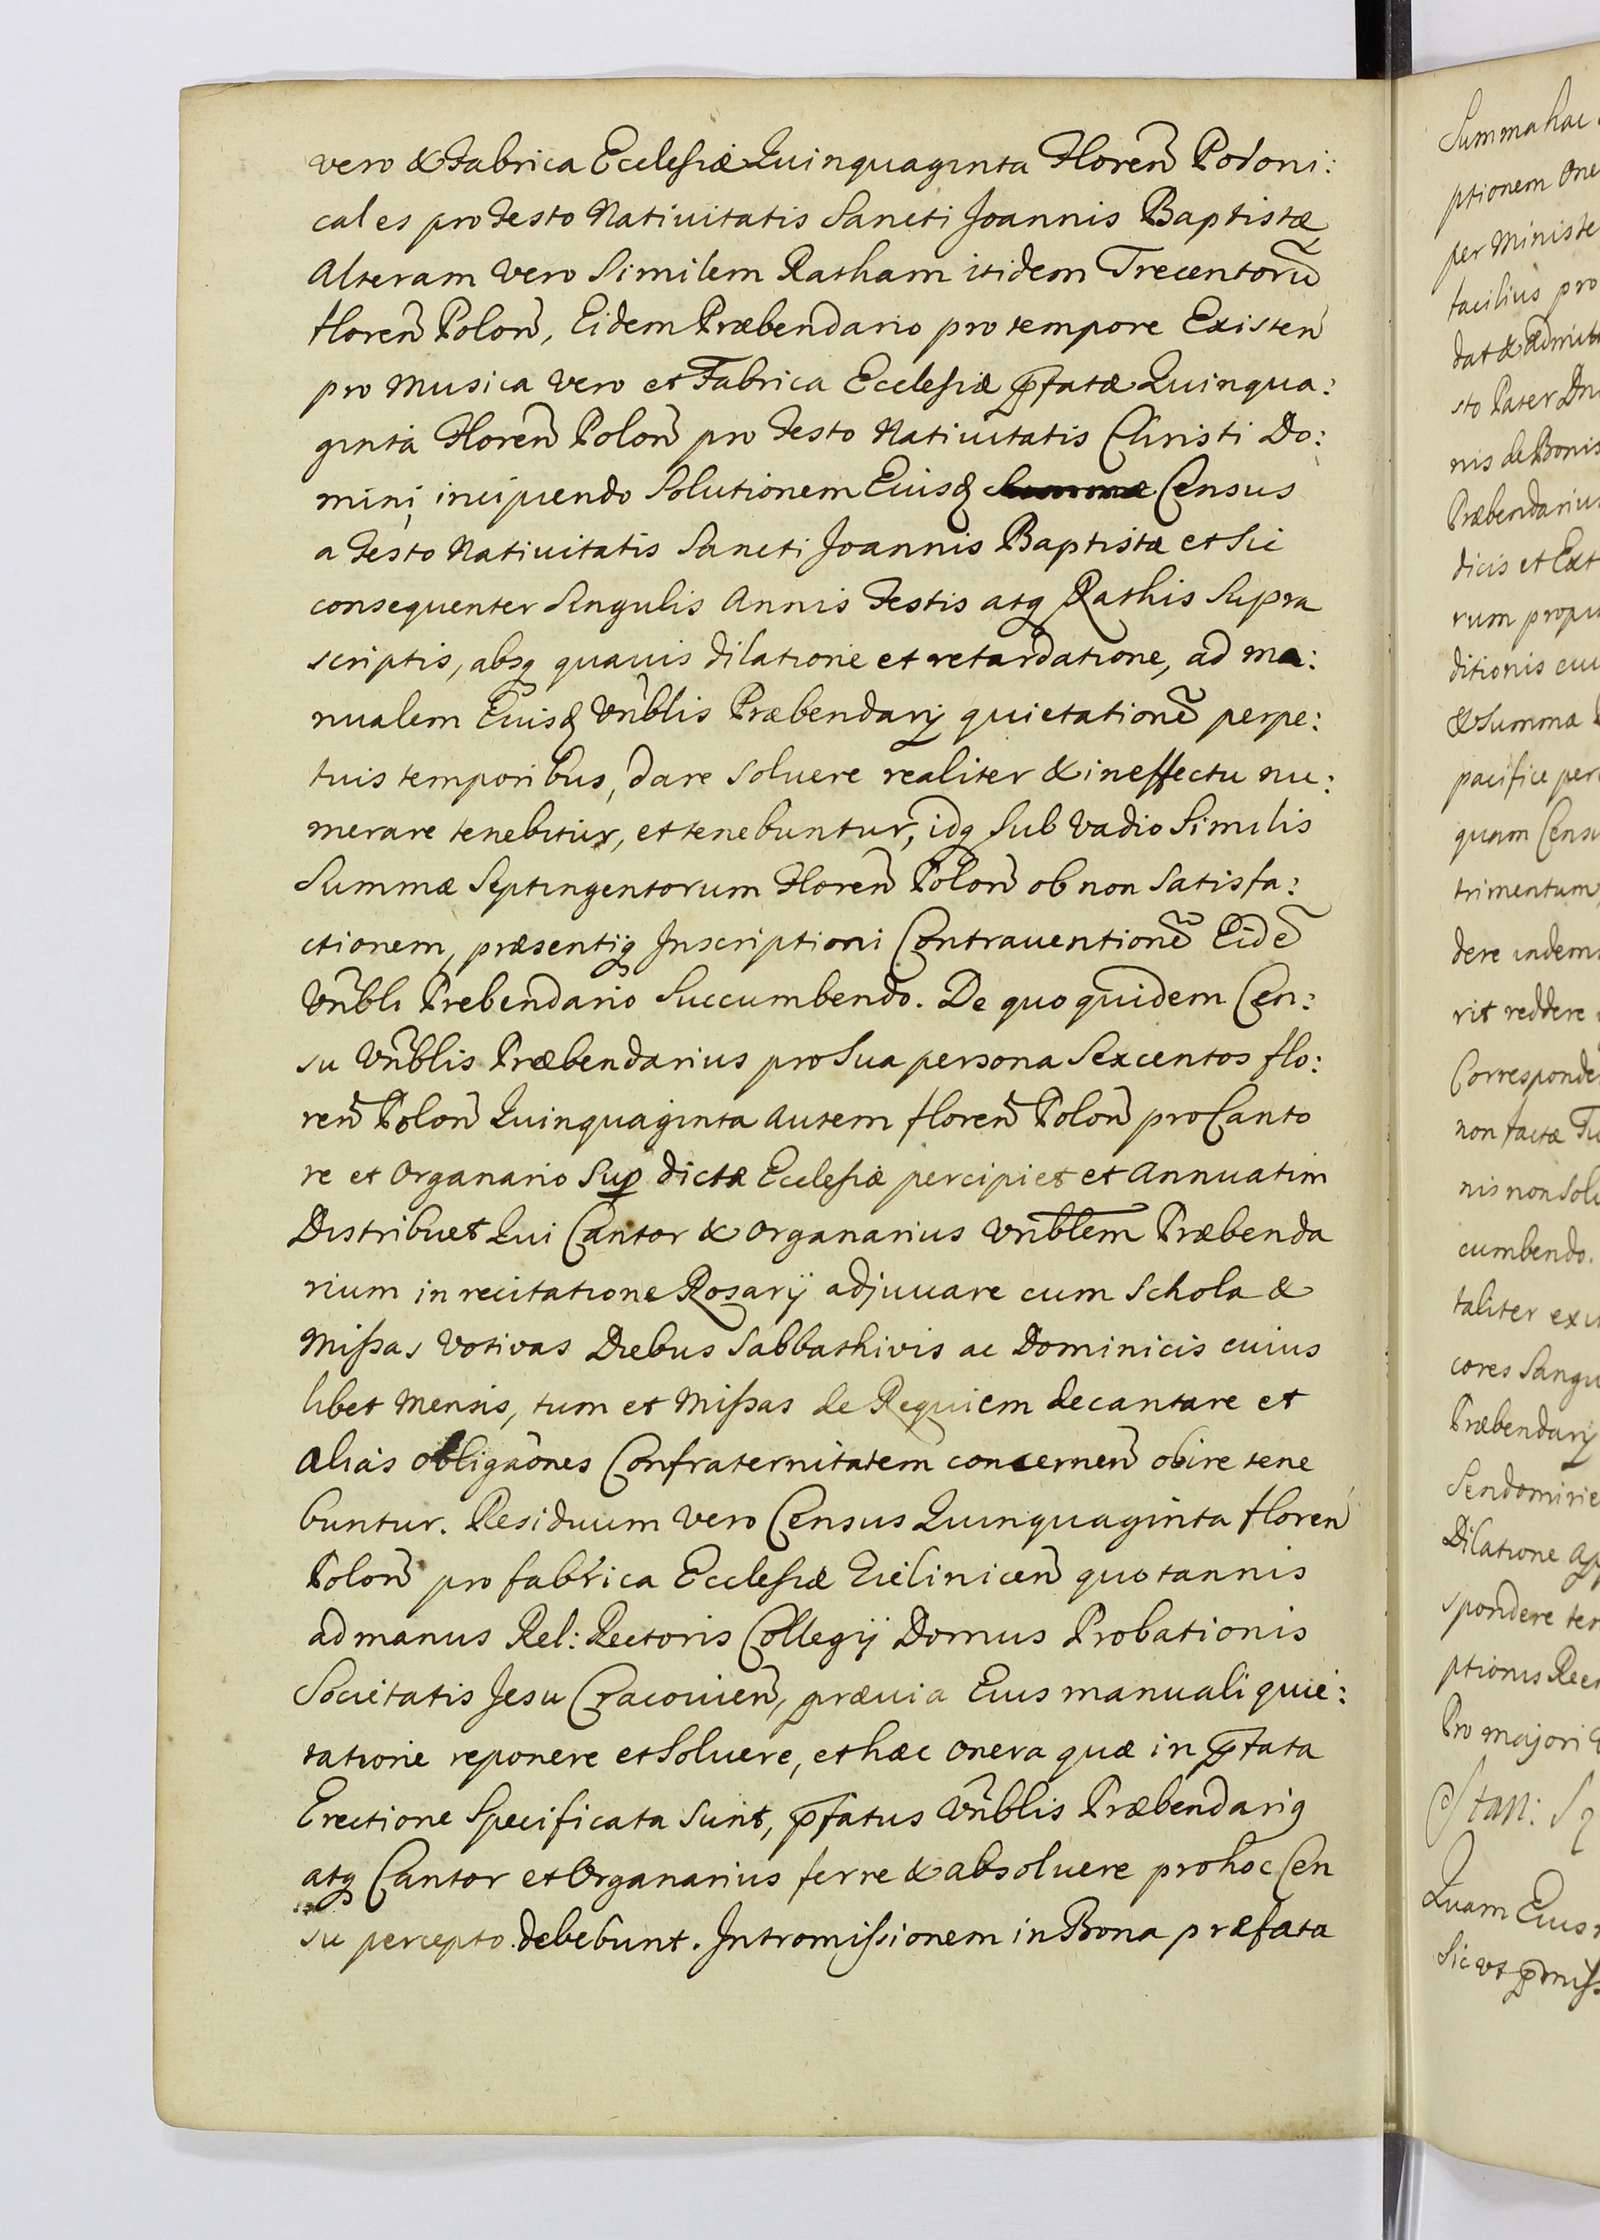 vero & Fabrica Ecclesiæ Quinquaginta Floreñ Poloni:
cales pro Festo Nativitatis Sancti Joannis Baptistæ
Alteram vero Similem Ratham itidem Trecentorũ
floreñ Poloñ, Eidem Præbendario pro tempore Existeñ
pro Musica vero et Fabrica Ecclesiæ p̃fatæ Quinqua:
ginta Floreñ Poloñ pro Festo Nativitatis Christi Do:
mini, incipiendo Solutionem Eiusđ Census
a Festo Nativitatis Sancti Joannis Baptistæ et Sic
consequenter Singulis Annis Festis atq Rathis Supra
scriptis, absq quavis dilatione et retardatione, ad ma:
nualem Eiusđ Vñblis Præbendarij quietationẽ perpe:
tuis temporibus, dare Soluere realiter & in effectu nu:
merare tenebitur, et tenebuntur, idq Sub Vadio Similis
Summæ Septingentorum Floreñ Poloñ ob non Satisfa:
ctionem, præsentiq Inscriptioni Contrauentionẽ Eidẽ
Vñbli Prebendario Succumbendo. De quo quidem Cen:
su Vñblis Præbendarius pro Sua persona Sexcentos flo:
reñ Poloñ Quinquaginta Autem floreñ Poloñ pro Canto
re et Organario Sup dictæ Ecclesiæ percipiet et Annuatim
Distribuet Qui Cantor & Organarius Vñblem Præbenda
rium in recitatione Rosarij adjuuare cum Schola &
Missas Votivas Diebus Sabbathivis ac Dominicis cuius
libet Mensis, tum et Missas de Requiem decantare et
alias obligaõnes Confraternitatem concerneñ obire tene
buntur. Residuum vero Census Quinquaginta floreñ
Poloñ pro fabrica Ecclesiæ Zieliniceñ quotannis
ad manus Rel: Rectoris Collegij Domus Probationis
Societatis Jesu Cracouieñ, præuia Eius manuali quie:
tatione reponere et Soluere, et hæc Onera quæ in p̃fata
Erectione Specificata Sunt, p̃fatus Vñblis Præbendariq
atq Cantor et Organarius ferre & absoluere pro hoc Cen
su percepto debebunt. Intromissionem in Bona præfata
Summa hac
ptionem One
per Ministe
facilius pro
dat & Admit
sto Pater Dn
nis de Bonis
Præbendarius
dicis et Ext
rum propi
ditionis cui
& Summa
pacifice per
quam Censu
trimentum
dere indem
rit reddere
Corresponde
non factæ
nis non Solu
cumbendo.
taliter
cores Sangu
Præbendarij
Sendomirie
Dilatione
spondere ter
ptionis Rec
Pro majori
Stan:
Quam Eius
Sic vt p̃miss